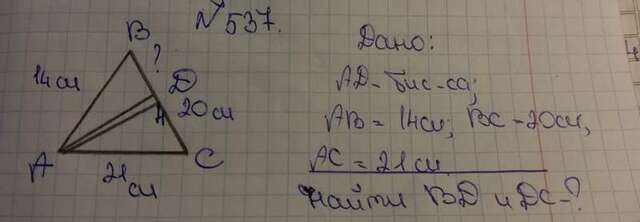 №537.
Дано:
B
?
14см
D
20см
A
C
21
см
AD-бис-са;
AB=14см; BC=20см,
AC=21см
Найти BD и DC-?